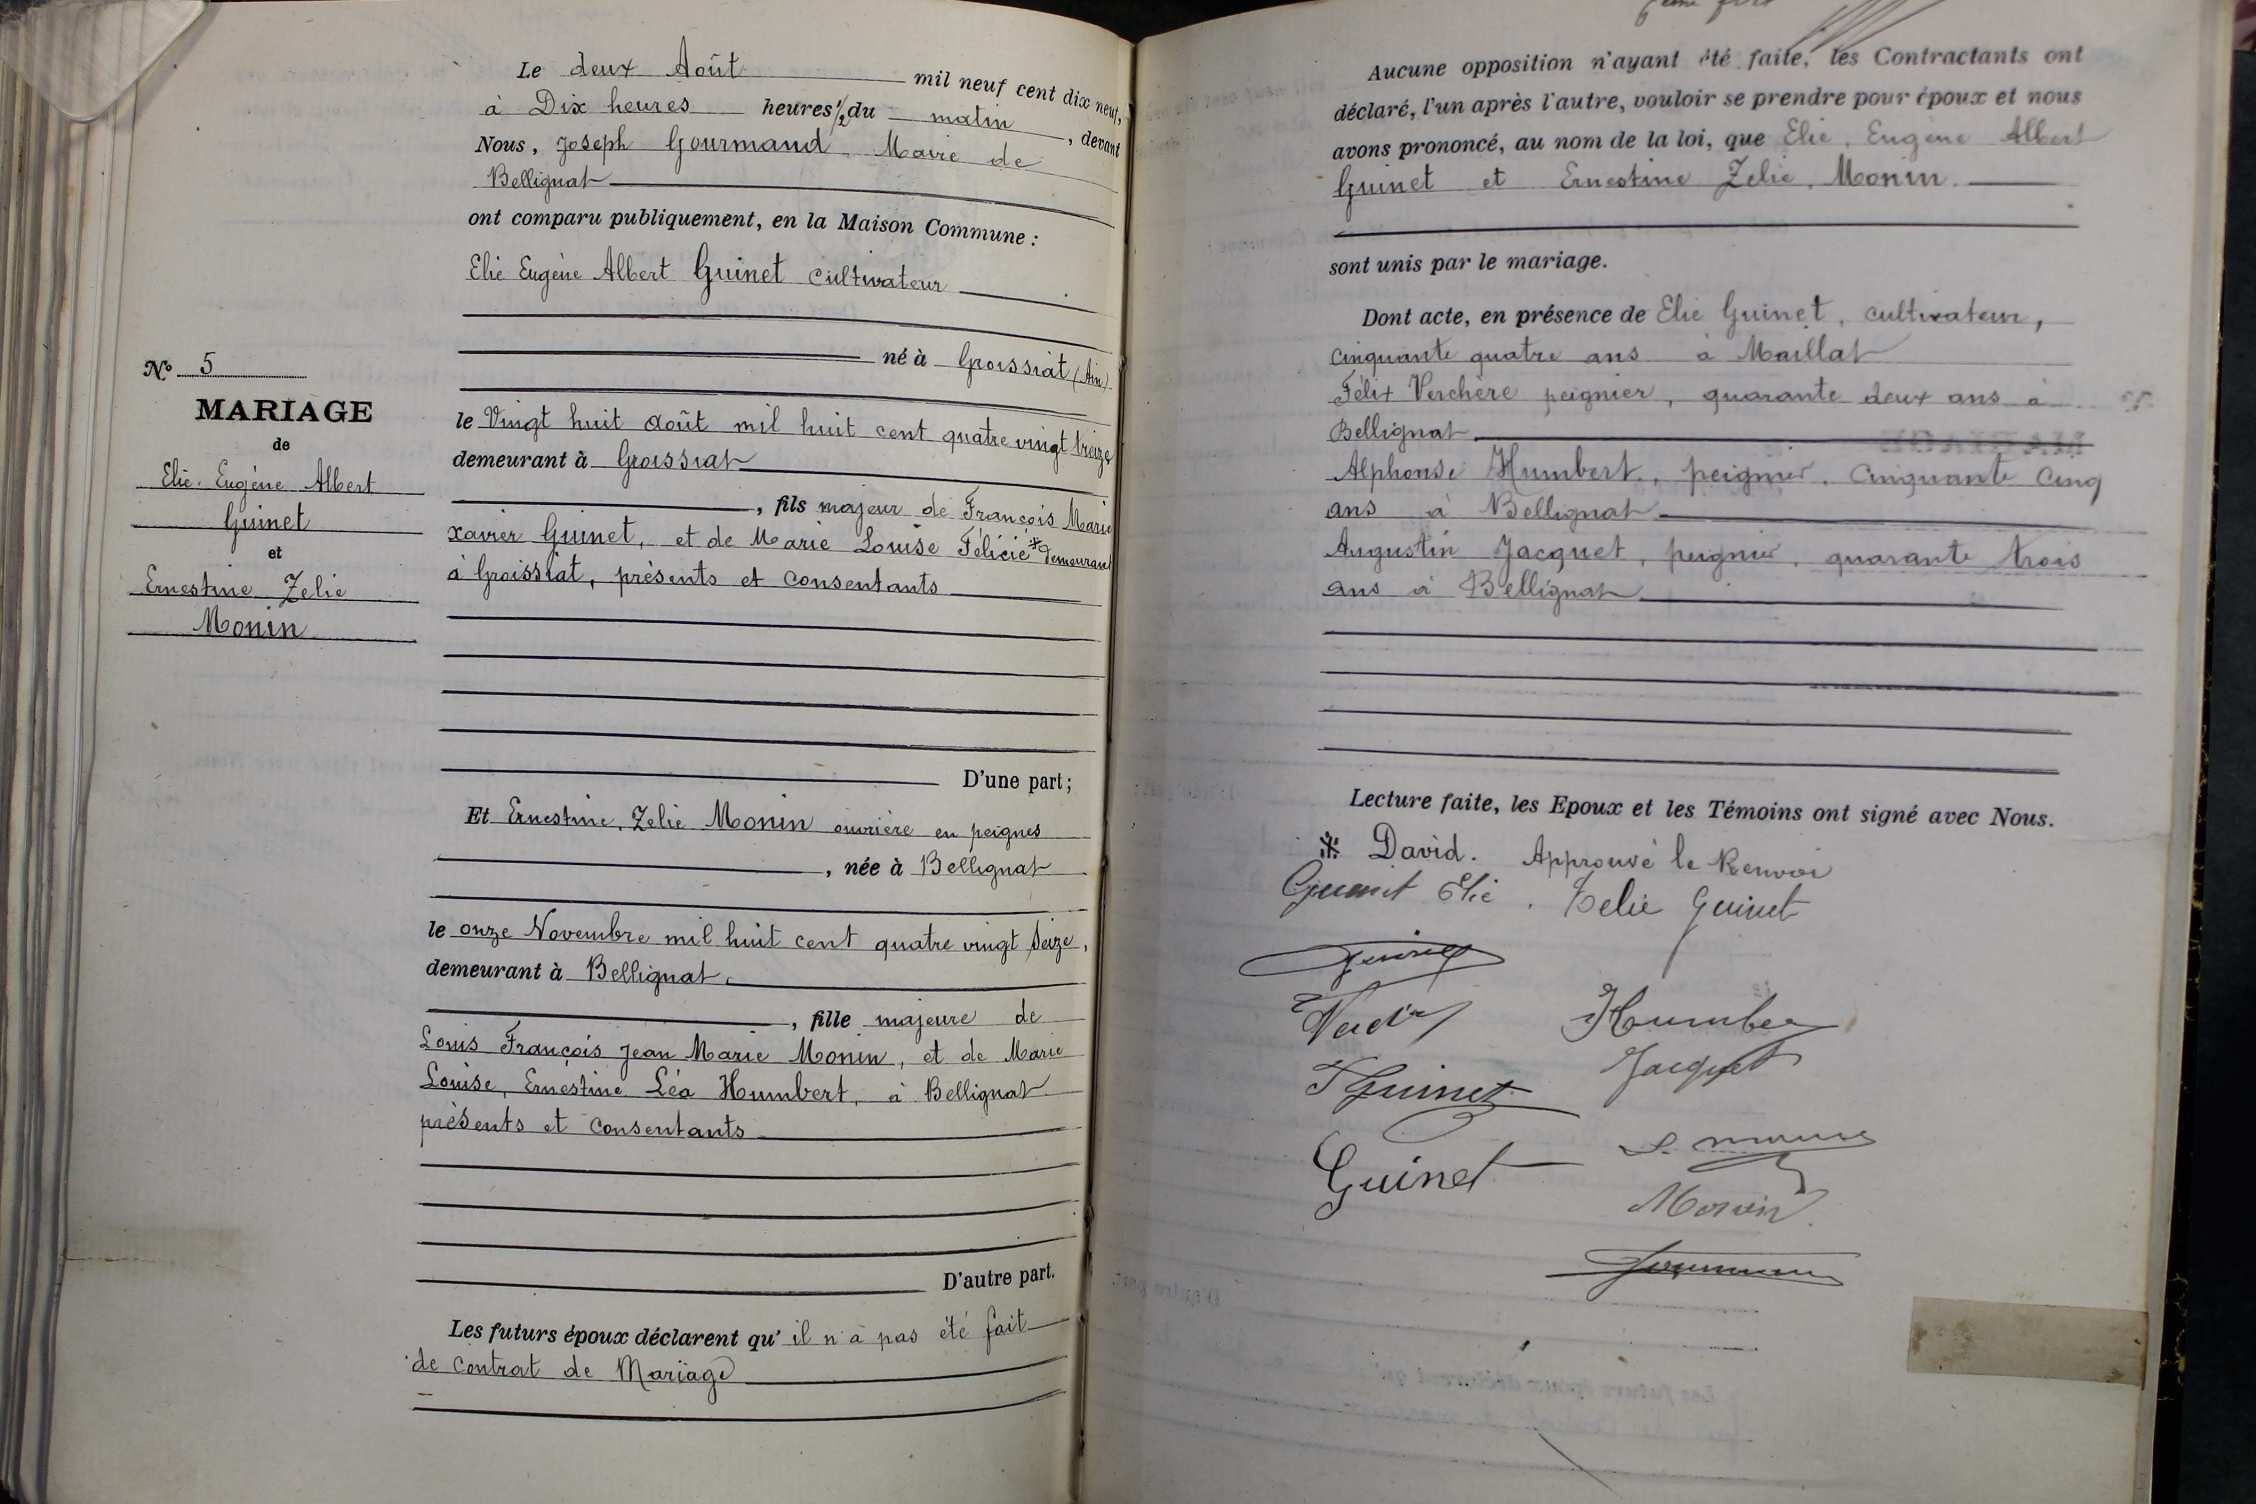 Le deux Août mil neuf cent dix neuf,
à Dix heures heures 1/2 du matin, devant
Nous, Joseph Gourmand Maire de
Bellignat
ont comparu publiquement, en la Maison Commune :
Elie Eugène Albert Guinet cultivateur
né à Groissiat (Ain)
le Vingt huit août mil huit cent quatre vingt treize
demeurant à Groissiat
, fils majeur de François Marie
xavier Guinet, et de Marie Louise Félicie * demeurant
à Groissiat, présents et consentants
D'une part ;
No 5
MARIAGE
de
Elie. Eugène Albert
Guinet
et
Ernestine Zelie
Monin
Et Ernestine, Zelie Monin ouvrière en peignes
, née à Bellignat
le onze Novembre mil huit cent quatre vingt seize,
demeurant à Bellignat
, fille majeure de
Louis François Jean Marie Monin, et de Marie
Louise, Ernestine Léa Humbert, à Bellignat
présents et consentants
D'autre part.
Les futurs époux déclarent qu' il n'a pas été fait
de contrat de Mariage
Aucune opposition n'ayant été faite, les Contractants ont
déclaré, l'un après l'autre, vouloir se prendre pour époux et nous
avons prononcé, au nom de la loi, que Elie, Eugène Albert
Guinet et Ernestine Zelie, Monin.
sont unis par le mariage.
Dont acte, en présence de Elie Guinet, cultivateur,
cinquante quatre ans à Maillat
Félix Verchère peignier, quarante deux ans à
Bellignat
Alphonse Humbert, peignier, cinquante cinq
ans à Bellignat
Augustin Jacquet, peignier, quarante trois
ans à Bellignat
Lecture faite, les Epoux et les Témoins ont signé avec Nous.
* David. Approuvé le Renvoi
Guinet Elie. Zelie Guinet
Humbert
Jacquet
F Guinet
Guinet
Monin